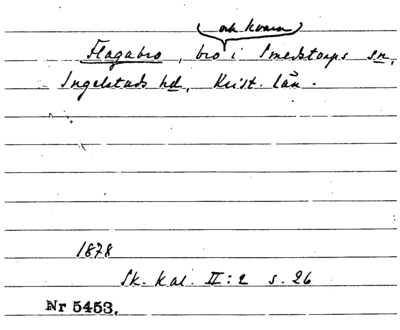 (och kvarn)
Flagabro, bro i Smedstorps sn,
Ingelstads hd, Krist. län.
1878
Sk. kal. II:2 s. 26
Nr 5453.